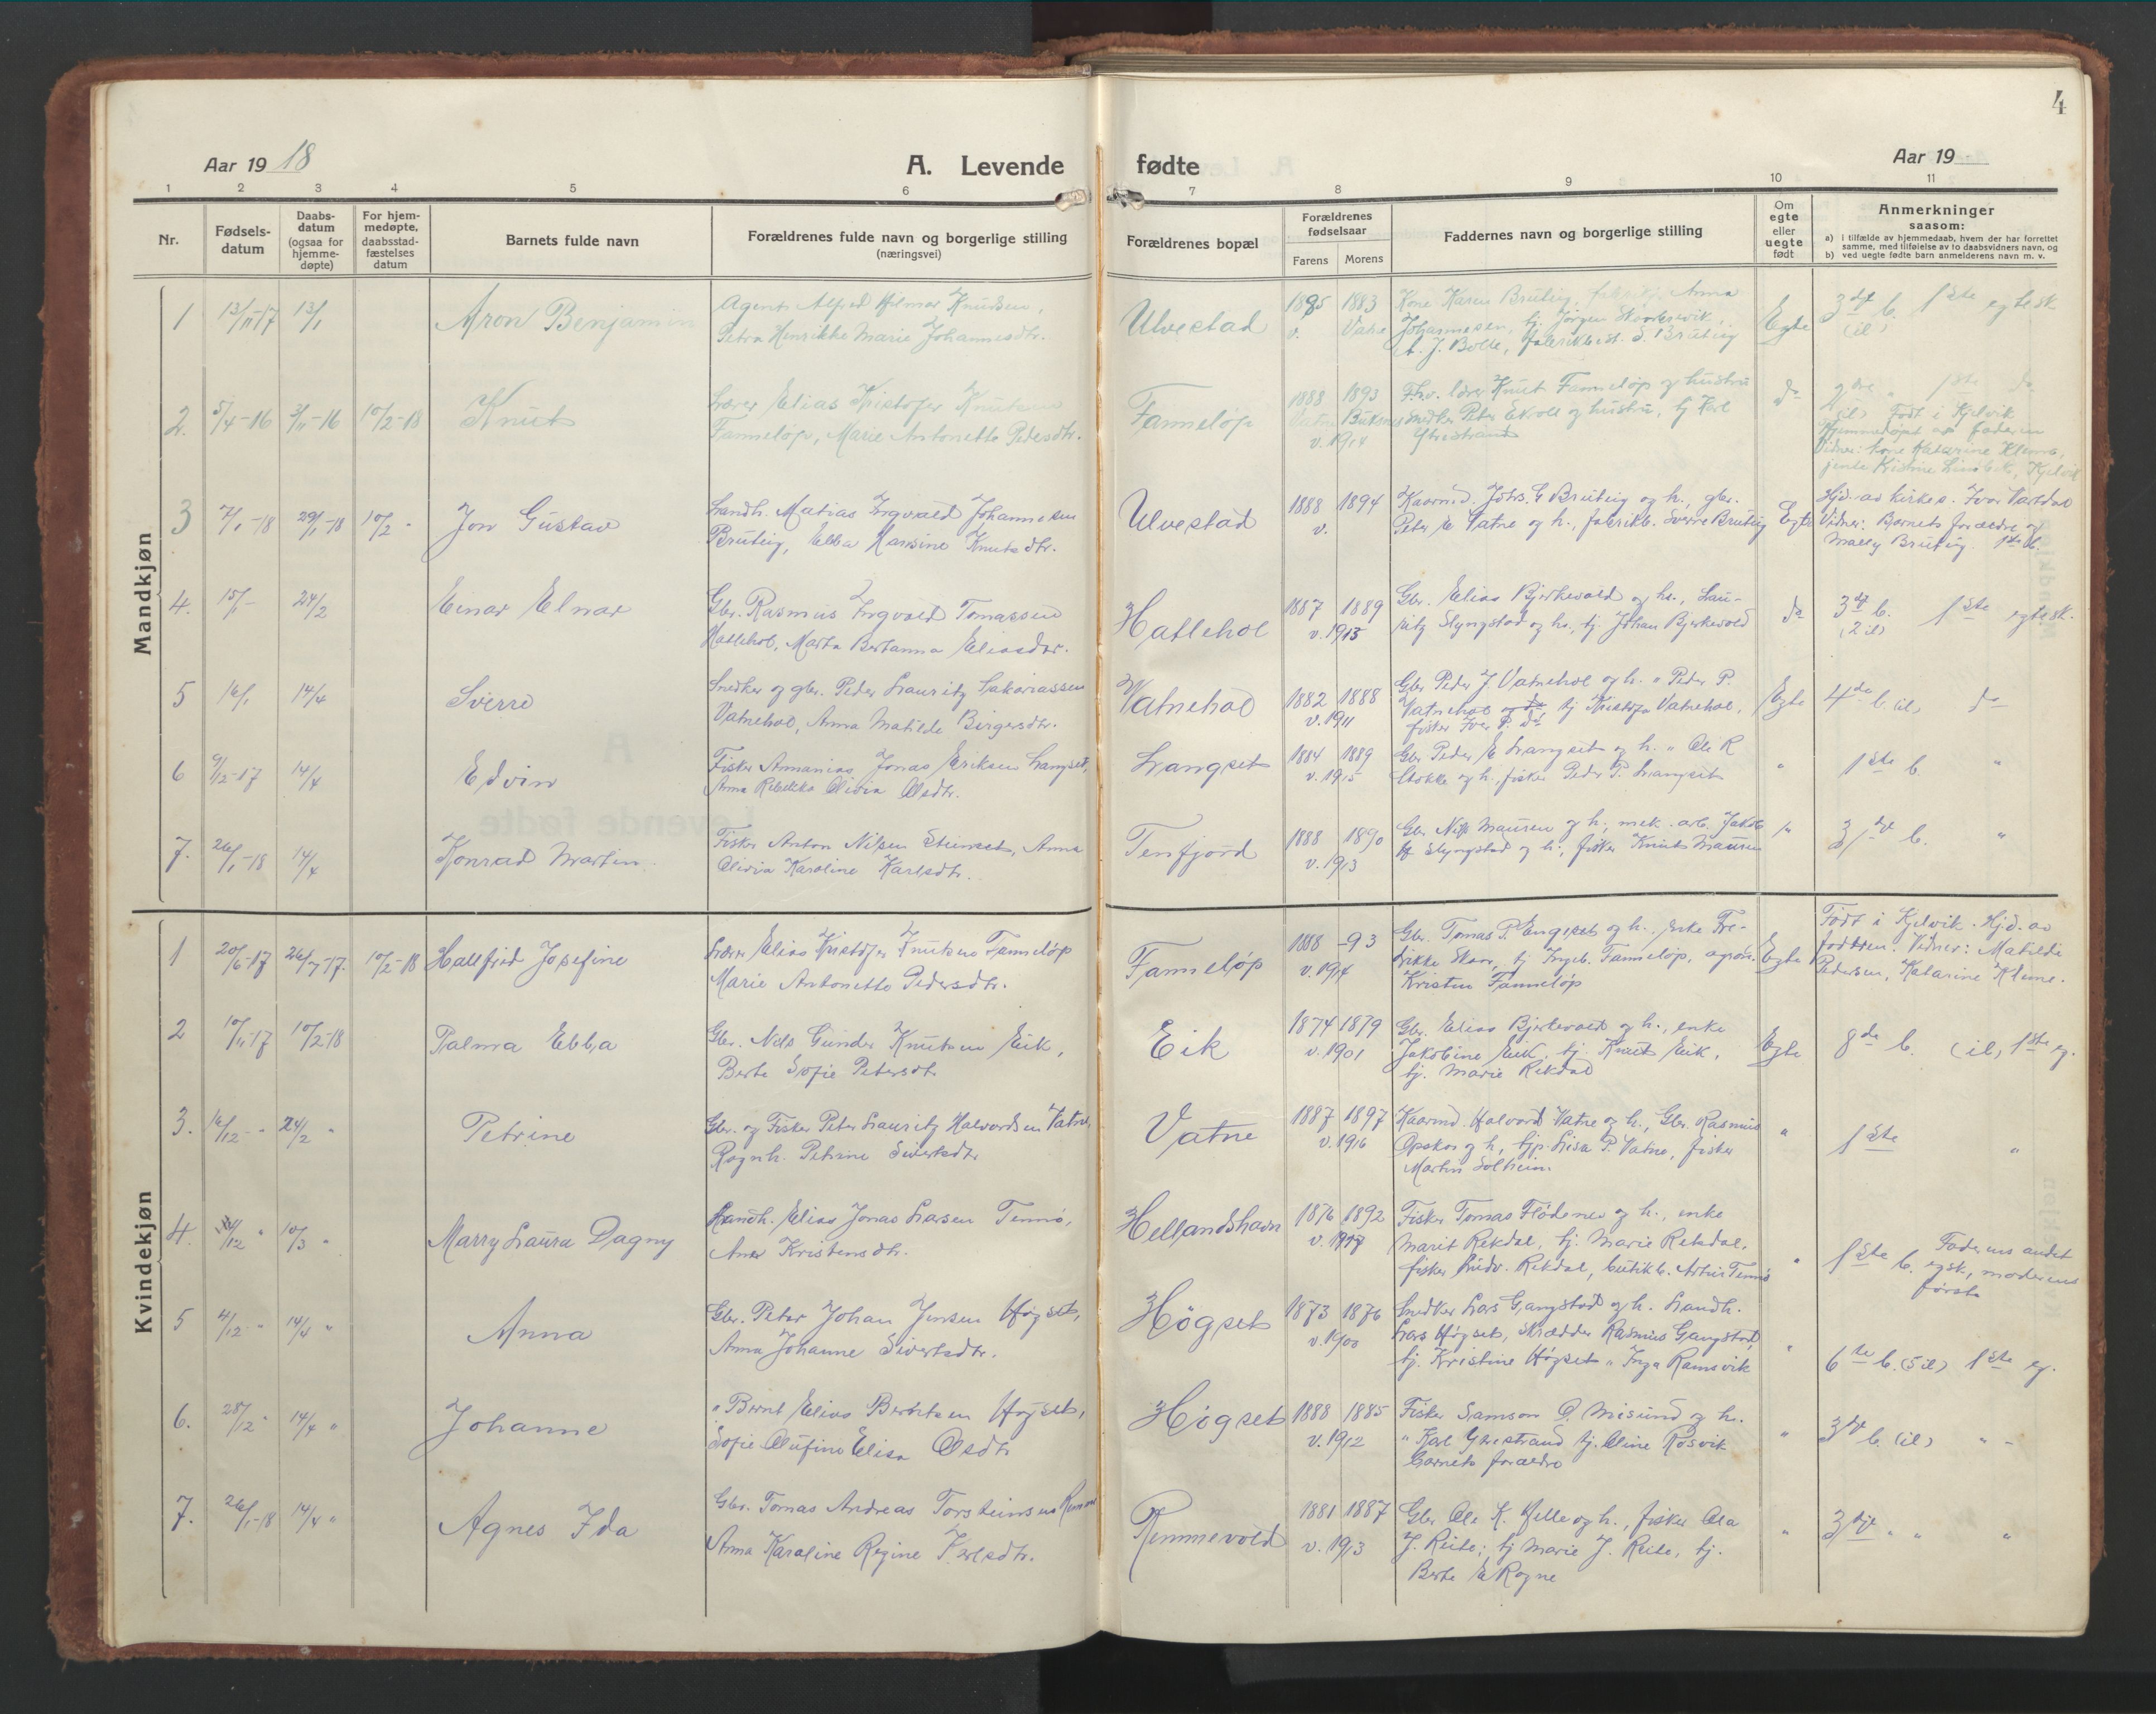 4
Aar 1918
A. Levende fødte
Aar 19
1 2 3 4 5 6 7 8 9 10 11
Nr.
Fødsels-
datum
Daabs-
datum
(ogsaa for
hjemme-
døpte)
For hjem-
medøpte,
daabsstad-
fæstelses
datum
Barnets fulde navn
Forældrenes fulde navn og borgerlige stilling
(næringsvei)
Forældrenes bopæl
Forældrenes
fødselsaar
Farens Morens
Faddernes navn og borgerlige stilling
Om
egte
eller
uegte
født
Anmerkninger
saasom:
a) i tilfælde av hjemmedaab, hvem der har forrettet
samme, med tilføielse av to daabsvidners navn, og
b) ved uegte fødte barn anmelderens navn m. v.
Mandkjøn
1 13/11-17 13/1 Aron Benjamin
Agent Alfred Hilmar Knudsen,
Petra Henrikke Marie Johannesdtr.
Ulvestad
1885 1883
v. Vatne
Kone Karen Brüteig, Anna
Johannesen, tj. Jørgen
A. J. Bolle, S. Brüteig
Egte
3dje b. 1ste egtesk.
(il)
2. 5/4-16 3/11-16 10/2-18 Knut
Lærer Elias Kristofer Knutsen
Fanneløp, Marie Antonette Pedersdtr.
Fanneløp
1888 1893
Vatne Buksnes
v. 1914
Fhv. lærer Knut Fanneløp og hustru
Snedker Peter Ekroll og hustru, tj Karl
Ytrestrand
do
2dre " 1ste do
(il) Født i Kjelvik
Hjemmedøpt av faderen
Vidner: kone Katarine Klemo,
jente Kristine Kjelvik
3 7/1-18 29/1-18 10/2 " Jon Gustav
Landh. Matias Ingvald Johannesen
Brüteig, Ebba Marsine Knutsdtr.
Ulvestad
1888 1894
v.
Kaarmd. Johs. E Brüteig og h., gbr.
Peter E Vatne og h., fabrikb. Sverre Brüteig
Egte
Hjd. av kirkes. Ivar Vatdal
Vidner: Barnets forældre og
Mally Brüteig. 1ste b.
4. 15/1- 24/2 Einar Elnar
Gbr. Rasmus Ingvald Tomassen
Hatlehol, Marta Bertanna Eliasdtr.
Hatlehol
1887 1889
v. 1913
Gbr. Elias Bjerkevold og h., Lau-
ritz Slyngstad og h., tj. Johan Bjerkevold
do
3dje b. 1ste egtesk.
(2 il)
5 16/1 14/4 Sverre
Snedker og gbr. Peder Lauritz Sakariassen
Vatnehol, Anna Matilde Birgersdtr.
Vatnehol
1882 1888
v. 1911
Gbr Peder J. Vatnehol og h. " Peder P.
Vatnehol tj Kristofa Vatnehol,
fisker Iver P. do
Egte
4de b. (il) do
6 9/12-17 14/4 Edvin
Fisker Annanias Jonas Eriksen Langset,
Anna Rebekka Olivia Olsdtr.
Langset
1884 1889
v. 1915
Gbr Peder E Langset og h. " Ole R
Stokke og h., fisker Peder P. Langset
"
1ste b "
7. 26/1-18 14/4 Konrad Martin
Fisker Anton Nilsen Steinset, Anna
Olivia Karoline Karlsdtr.
Tenfjord
1888 1890
v. 1913
Gbr Nils Mauren og h., mek. arb. Jakob
Slyngstad og h., fisker Knut Mauren
"
3dje b. "
Kvindekjøn
1 20/6-17 26/7-17 10/2-18 Hallfrid Josefine
Lærer Elias Kristofer Knutsen Fanneløp
Marie Antonette Pedersdtr.
Fanneløp
1888 -93
v. 1914
Gbr. Tomas P. Engeset og h., enke Fre-
drikke Skaar, tj Ingeb. Fanneløp,
Kristen Fanneløp
Egte
Født i Kjelvik. Hjd. av
faderen. Vidner: Matilde
Pedersen, Katarine Kleme.
2 10/11-17 10/2-18 Palma Ebba
Gbr. Nils Gunder Knutsen Eik,
Berte Sofie Petersdtr.
Eik
1874 1879
v. 1901
Gbr. Elias Bjerkevold og h., enke
Jakobine Eik, tj. Knut Eik,
tj. Marie Rekdal
Egte
8de b. (il) 1ste eg.
3. 16/12- " 24/2 " Petrine
Gbr. og Fisker Peter Lauritz Halvordsen Vatne,
Ragnh. Petrine Sivertsdtr
Vatne
1887 1897
v. 1916
Kaarmd. Halvard Vatne og h., Gbr. Rasmus
Opskar og h, tjp. Lisa P. Vatne, fisker
Martin Solheim
"
1ste "
4. /12 " 10/3 " Marry Laura Dagny
Landh. Elias Jonas Larsen Tennø,
Ane Kristensdtr.
Hellandshavn
1876 1892
v. 1917
Fisker Tomas Flödenes og h., enke
Marit Rekdal, tj. Marie Rekdal,
fisker Rekdal, butikb. Artur Tennø
"
1ste b. Faderens andet
egsk., moderens
første
5 4/12 " 14/4 " Anna
Gbr. Peter Johan Jensen Høgset,
Anna Johanne Sivertsdtr.
Høgset
1873 1876
v. 1900
Snedker Lars Gangstad og h. Landh.
Lars Høgset, Skrædder Rasmus Gangstad,
tj. Kristine Høgset " Inga Ramsvik
"
6te b. (5 il) 1ste eg.
6. 28/12 " 14/4 " Johanne
" Bernt Elias Berntsen Høgset,
Sofie Olufine Elisa Olsdtr
Høgset
1888 1885
v. 1912
Fisker Samson O. Misund og h.
" Karl Ytrestrand tj. Oline Rosvik
barnets forældre
"
3dje b. (il) " -
7. 26/1-18 14/4 " Agnes Ida
Gbr. Tomas Andreas Torsteinsen
Anna Karoline Regine Karlsdtr.
Remmevold
1881 1887
v. 1913
Gbr Ole K. Helle og h., fisker Ola
J. Reite; tj Marie J. Reite, tj.
Berte E Rogne
"
3dje " " "